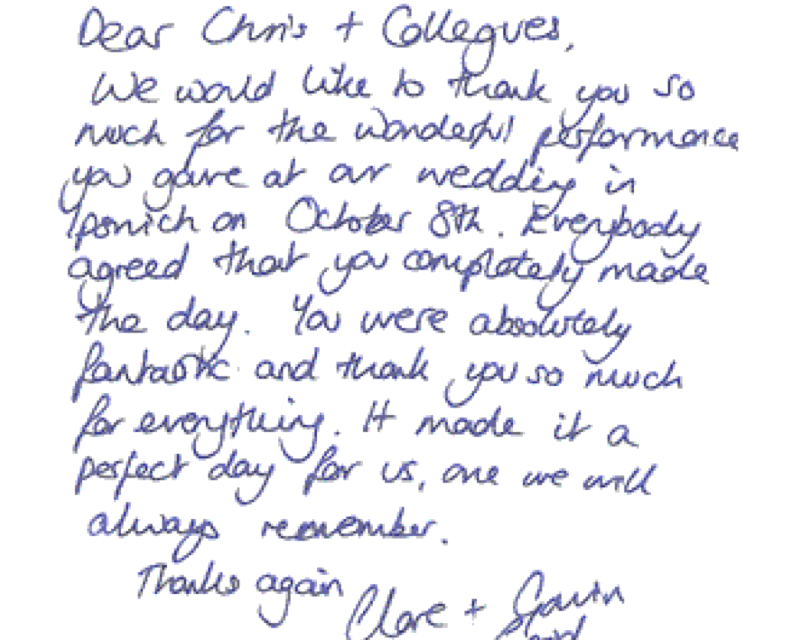 Dear Chris + Collegues,
We would like to thank you so
much for the wonderful performance
you gave at our wedding in
Ipswich on October 8th. Everybody
agreed that you completely made
the day. You were absolutely
fantastic and thank you so much
for everything. It made it a
perfect day for us, one we will
always remember.
Thanks again
Clare + Gavin